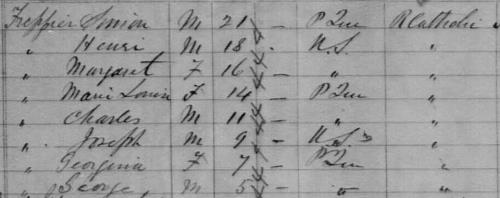 Freppier Simion M 21 – P Que R Catholic
" Henri M 18 . U.S. "
" Margaret F 16 – " "
" Marie Louise F 14 – P Que "
" Charles M 11 – " "
" Joseph M 9 – U.S. "
" Georginia F 7 – P Que "
" George M 5 – " "